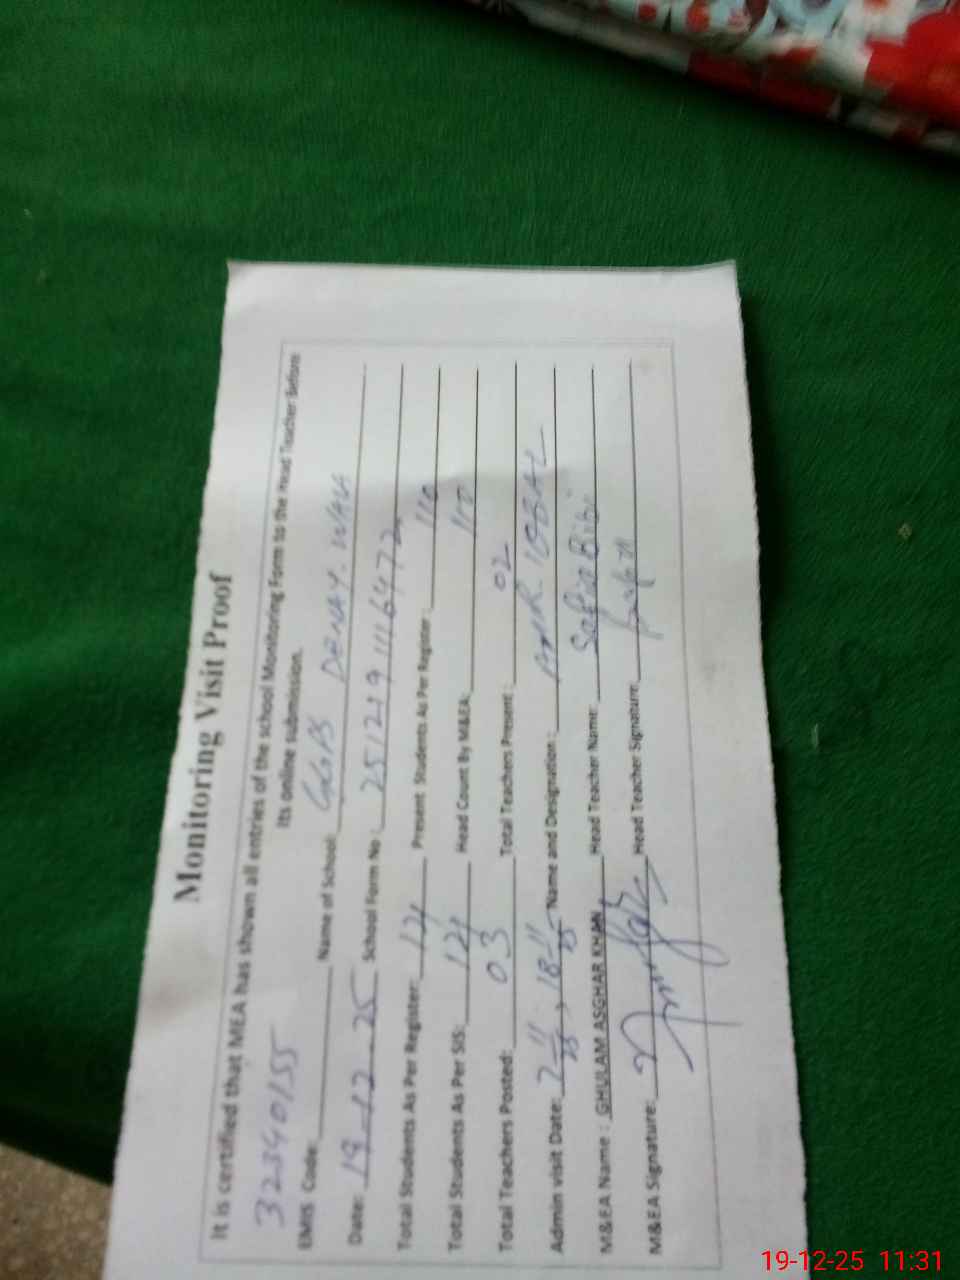 Monitoring Visit Proof
It is certified that MEA has shown all entries of the school Monitoring Form to the Head Teacher Before
its online submission.
EMIS Code: 32340155 Name of School: GGPS DENAY. WALA
Date: 19-12-25 School Form No: 25121911164972
Total Students As Per Register: 121 Present Students As Per Register: 110
Total Students As Per SIS: 121 Head Count By M&EA: 110
Total Teachers Posted: 03 Total Teachers Present: 02
Admin visit Date: Name and Designation: IQBAL
M&EA Name: GHULAM ASGHAR KHAN Head Teacher Name: Safia Bibi
M&EA Signature: Head Teacher Signature:
19-12-25 11:31